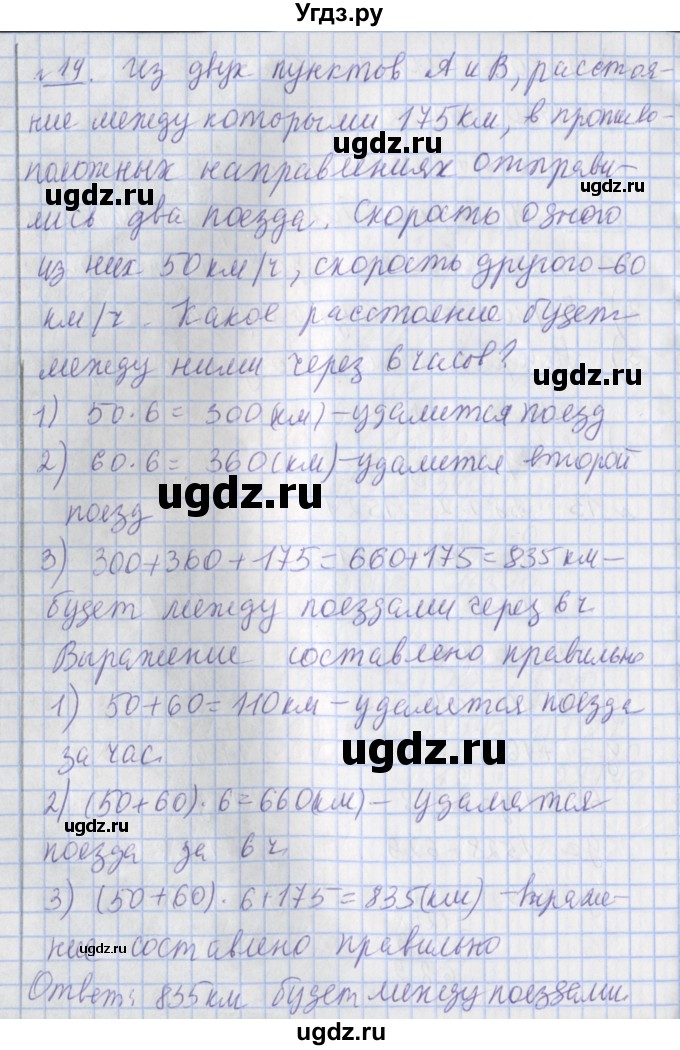 Угдз.ру
№19. Из двух пунктов А и В, расстоя-
ние между которыми 175км, в противо-
положных направлениях отправи-
лись два поезда. Скорость одного
из них 50км/ч, скорость другого -60
км/ч. Какое расстояние будет
между ними через 6 часов?
1) 50·6= 300(км)-удалится поезд
2) 60·6= 360(км)-удалится второй
поезд
3) 300+360+175=660+175=835км-
будет между поездами через 6ч
Выражение составлено правильно
1) 50+60=110км-удалятся поезда
за час.
2) (50+60)·6=660(км)- удалятся
поезда за 6ч.
3) (50+60)·6+175=835(км) -выраже-
ние составлено правильно
Ответ: 835км будет между поездами.
ugdz.ru
ugdz.ru
ugdz.ru
ugdz.ru
ugdz.ru
ugdz.ru
ugdz.ru
ugdz.ru
ugdz.ru
ugdz.ru
ugdz.ru
ugdz.ru